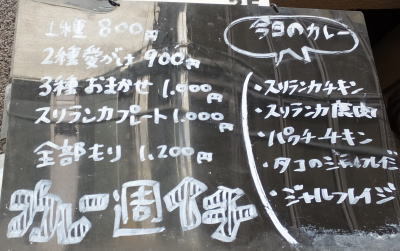 1種 800円
2種愛がけ 900円
3種おまかせ 1,000円
スリランカプレート 1,000円
全部もり 1,200円
カレー週イチ
今日のカレー
・スリランカチキン
・スリランカ鹿肉
・パクチーチキン
・タコのジャルフレイジ
・ジャルフレイジ